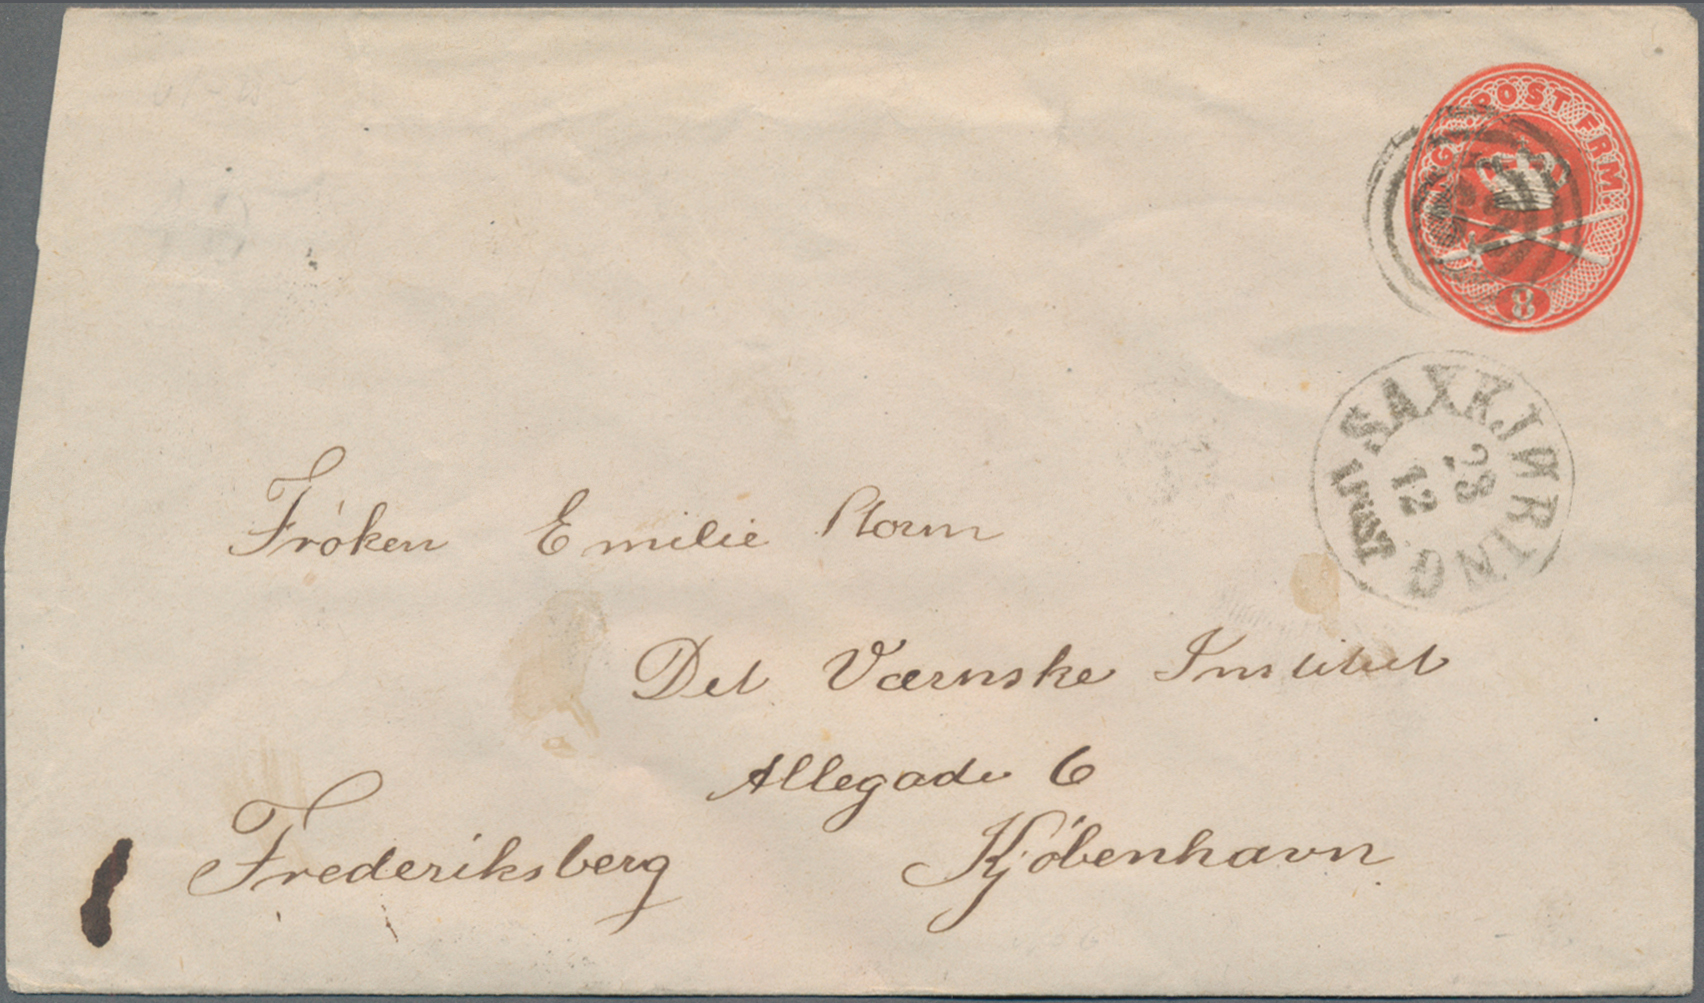 KGL. POST FRM.
8
SAXKJØRING
28
12
Fröken Emilie Storm
Det Værnske Institut
Allegade 6
Frederiksberg Kjöbenhavn